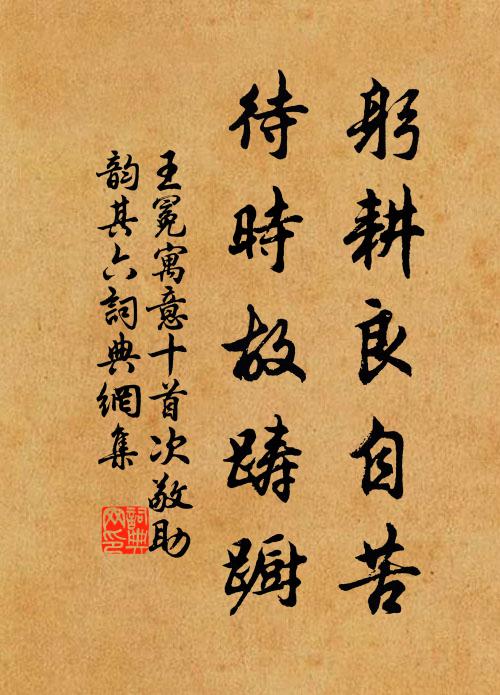 躬耕良自苦
待時故踌蹰
王冕寓意十首次敬助
韵其六詞典網集
詞典